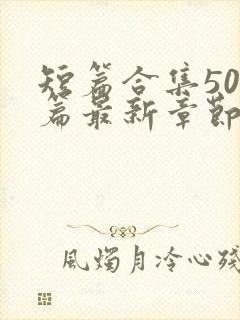 短篇合集50
篇最新章节
風燭月冷心殘